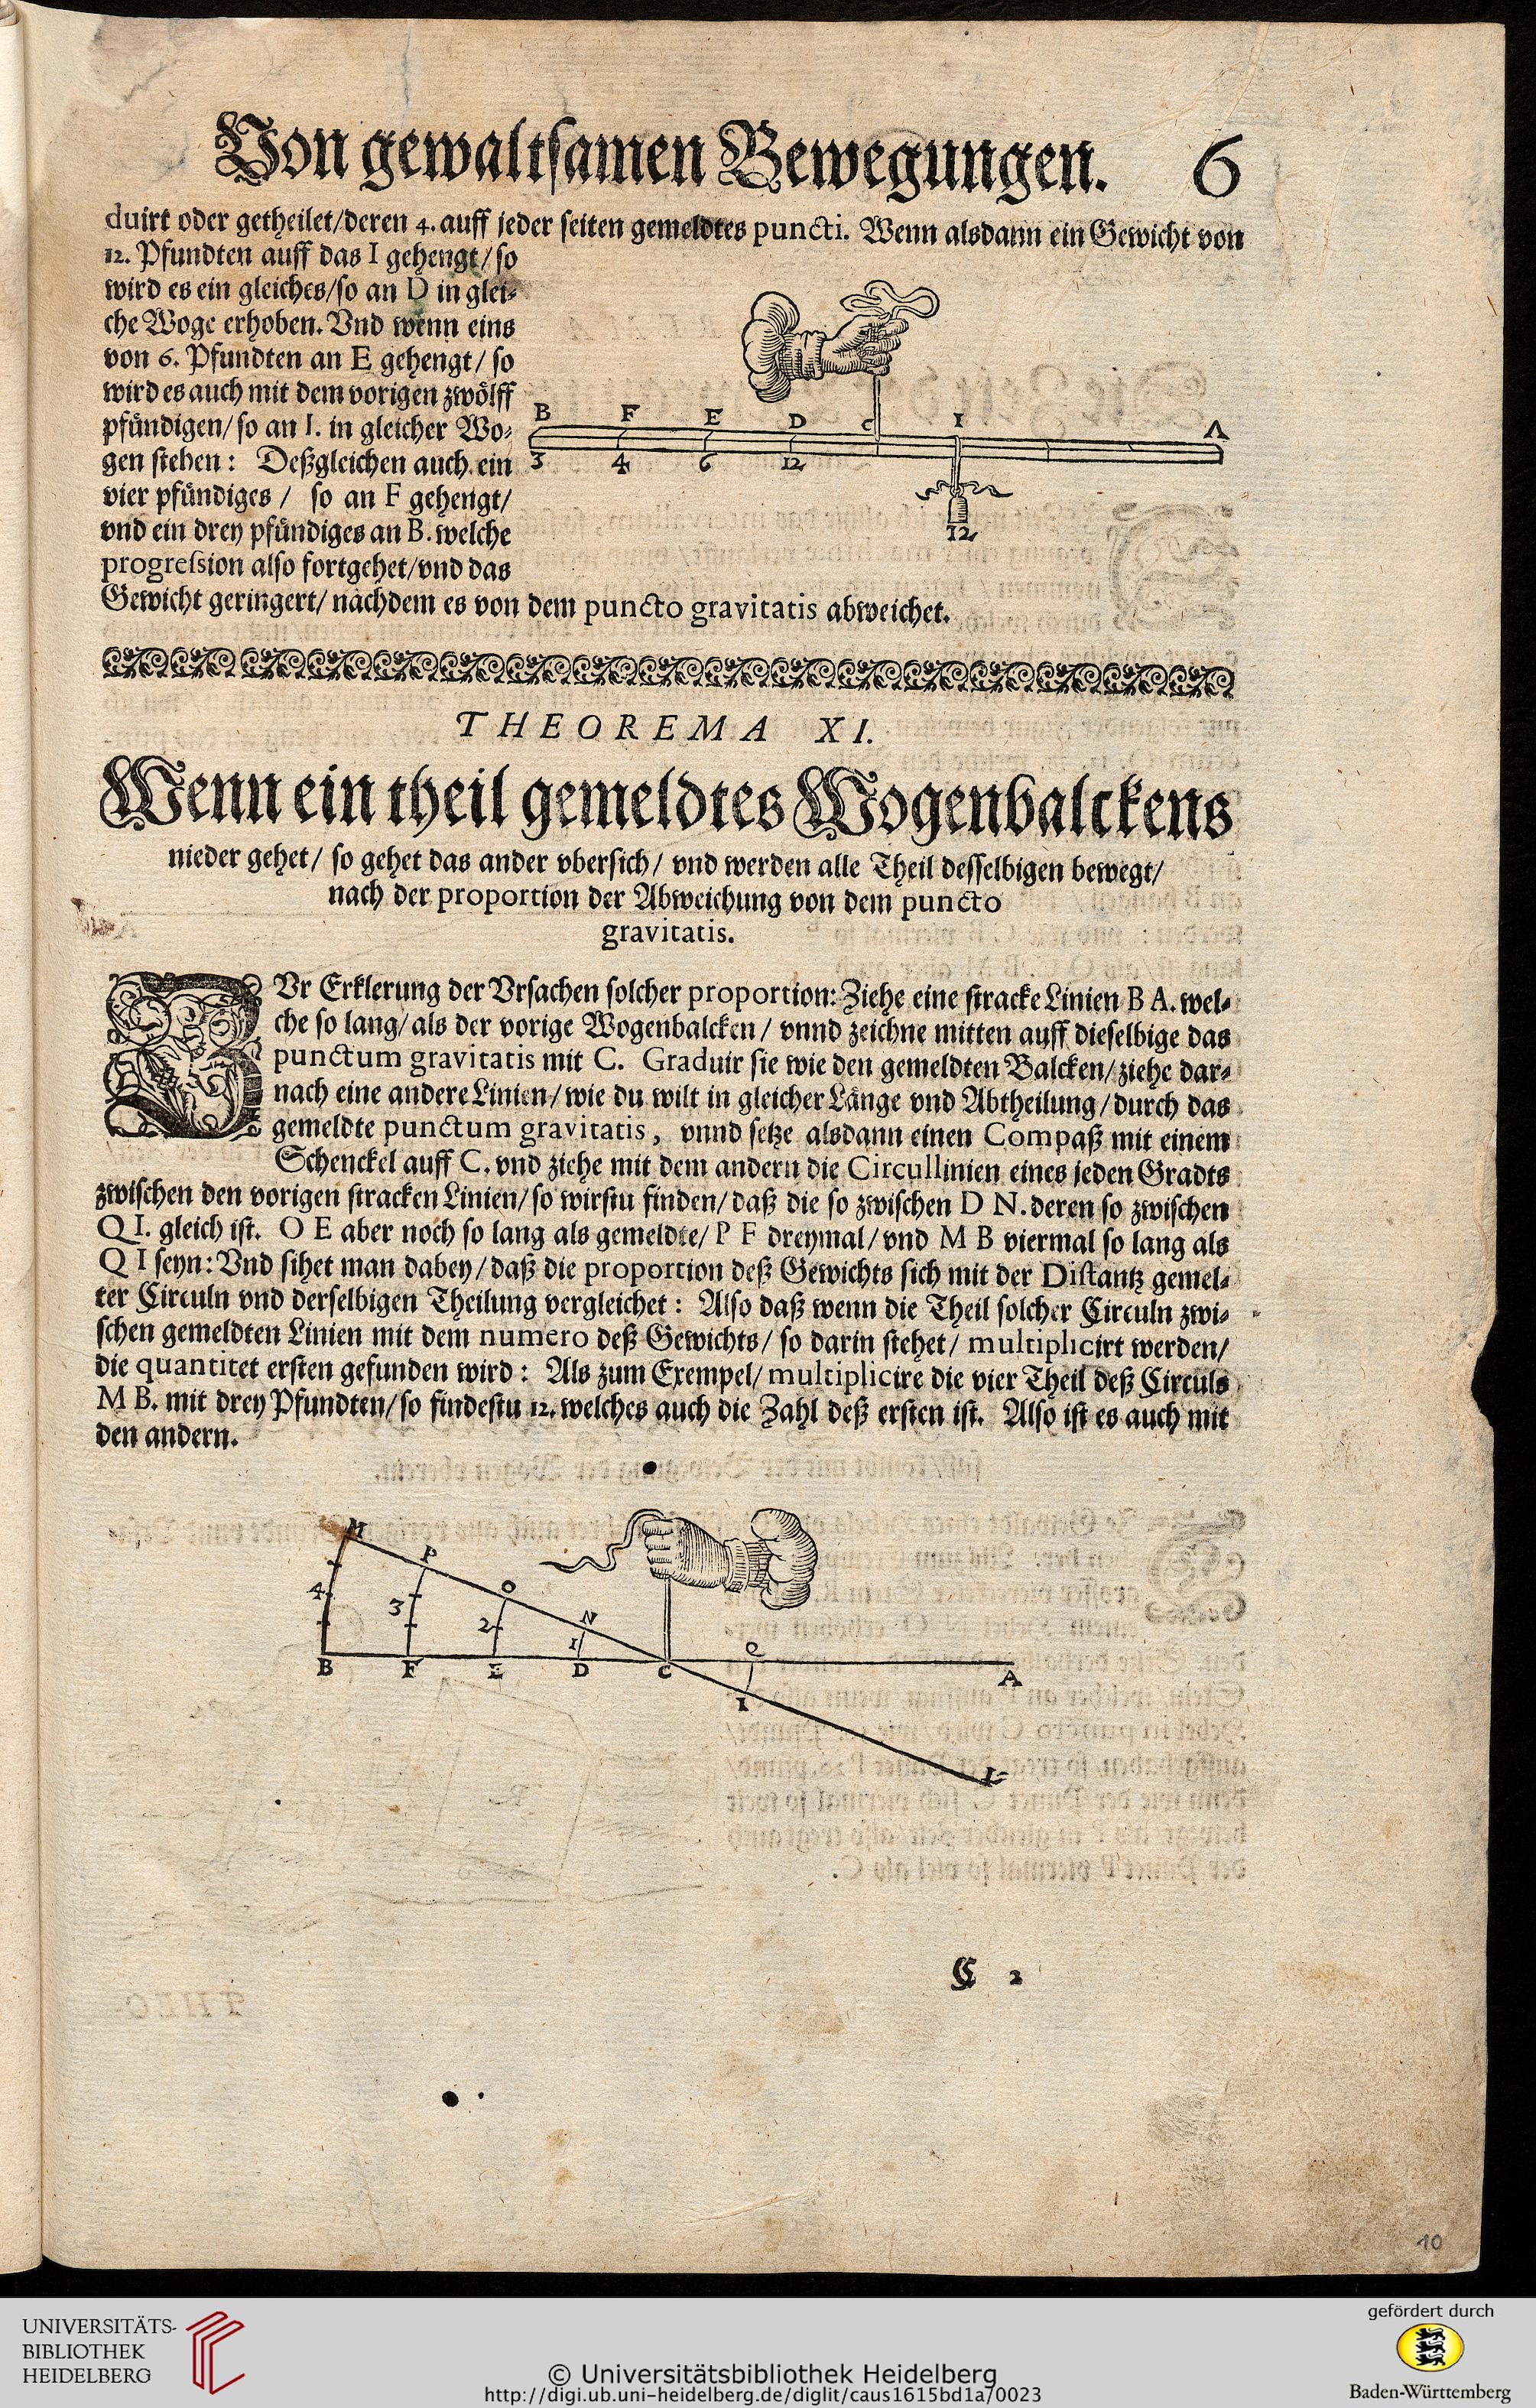 Von gewaltsamen Bewegungen. 6
duirt oder getheilet/deren 4. auff jeder seiten gemeldtes puncti. Wenn alsdann ein Gewicht von
12. Pfundten auff das I gehengt/ so
wird es ein gleiches/so an D in glei-
che Woge erhoben. Vnd wenn eins
von 6. Pfundten an E gehengt/ so
wird es auch mit dem vorigen zwölff
pfündigen/ so an I. in gleicher Wo-
gen stehen: Deßgleichen auch ein
vier pfündiges / so an F gehengt/
vnd ein drey pfündiges an B. welche
progression also fortgehet/vnd das
Gewicht geringert/ nachdem es von dem puncto gravitatis abweichet.
B F E D C I A
3 4 6 12
12
THEOREMA XI.
Wenn ein theil gemeldtes Wogenbalckens
nieder gehet/ so gehet das ander vbersich/ vnd werden alle Theil desselbigen bewegt/
nach der proportion der Abweichung von dem puncto
gravitatis.
ZVr Erklerung der Vrsachen solcher proportion: Ziehe eine stracke Linien B A. wel-
che so lang/ als der vorige Wogenbalcken/ vnnd zeichne mitten auff dieselbige das
punctum gravitatis mit C. Graduir sie wie den gemeldten Balcken/ ziehe dar-
nach eine andere Linien/ wie du wilt in gleicher Länge vnd Abtheilung/ durch das
gemeldte punctum gravitatis, vnnd setze alsdann einen Compaß mit einem
Schenckel auff C. vnd ziehe mit dem andern die Circullinien eines jeden Gradts
zwischen den vorigen stracken Linien/ so wirstu finden/ daß die so zwischen D N. deren so zwischen
Q I. gleich ist. O E aber noch so lang als gemeldte/ P F dreymal/ vnd M B viermal so lang als
Q I seyn: Vnd sihet man dabey/ daß die proportion deß Gewichts sich mit der Distantz gemel-
ter Circuln vnd derselbigen Theilung vergleichet: Also daß wenn die Theil solcher Circuln zwi-
schen gemeldten Linien mit dem numero deß Gewichts/ so darin stehet/ multiplicirt werden/
die quantitet ersten gefunden wird: Als zum Exempel/ multiplicire die vier Theil deß Circuls
M B. mit drey Pfundten/ so findestu 12. welches auch die Zahl deß ersten ist. Also ist es auch mit
den andern.
M P O N Q
4 3 2 1
B F E D C A
I
L
C 2
10
UNIVERSITÄTS-
BIBLIOTHEK
HEIDELBERG
© Universitätsbibliothek Heidelberg
http://digi.ub.uni-heidelberg.de/diglit/caus1615bd1a/0023
gefördert durch
Baden-Württemberg